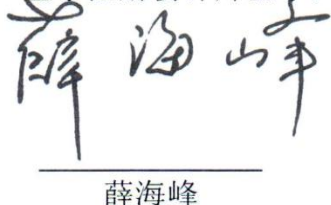 薛海峰
薛海峰